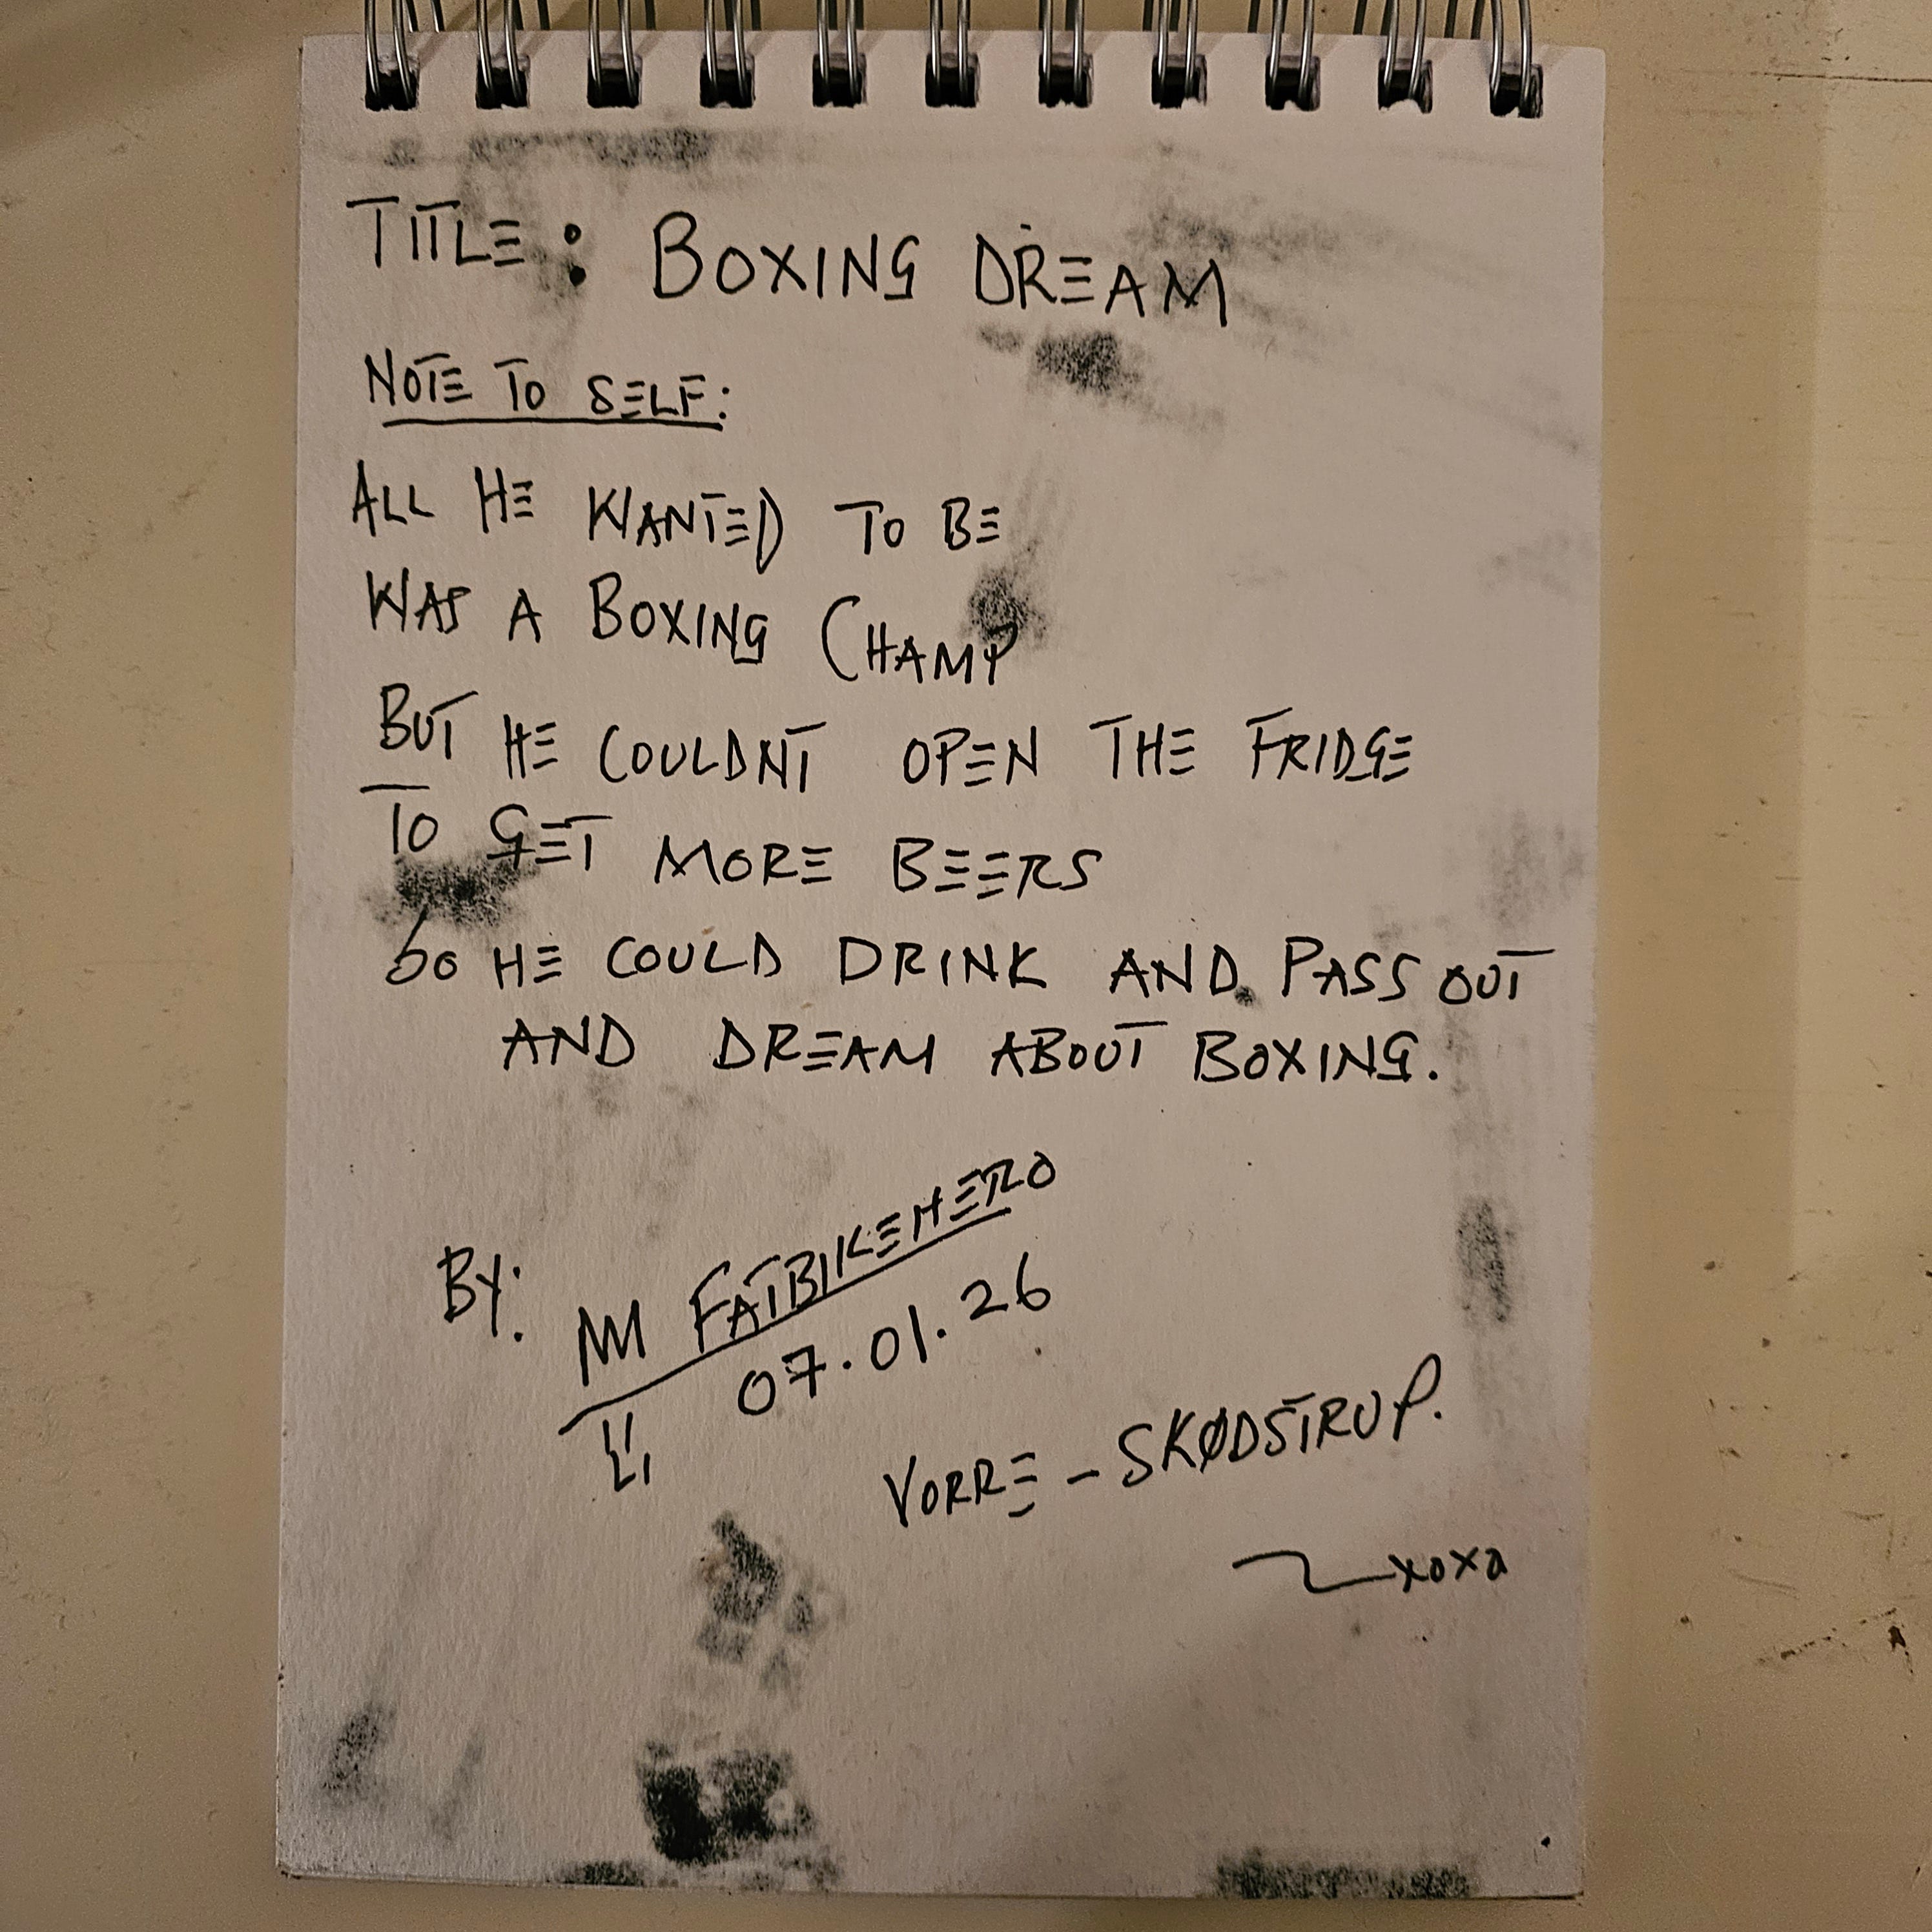 TITLE: BOXING DREAM
NOTE TO SELF:
ALL HE WANTED TO BE
WAS A BOXING CHAMP
BUT HE COULDNT OPEN THE FRIDGE
TO GET MORE BEERS
SO HE COULD DRINK AND PASS OUT
AND DREAM ABOUT BOXING.
BY: FATBIKEHERO
07.01.26
VORRE - SKØDSTRUP.
xoxo